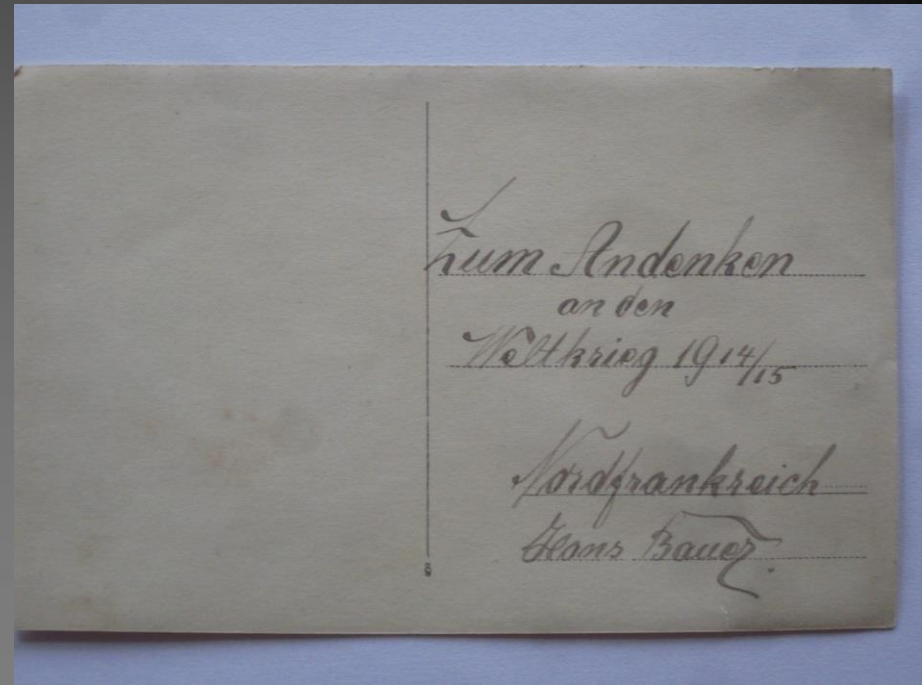 Zum Andenken
an den
Weltkrieg 1914/15
Nordfrankreich
Hans Bauer.
8